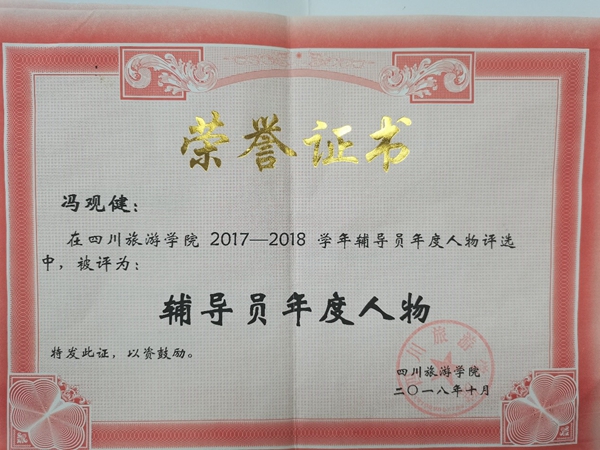 荣誉证书
冯观健：
在四川旅游学院 2017—2018 学年辅导员年度人物评选
中，被评为：
辅导员年度人物
特发此证，以资鼓励。
四川旅游学院
二〇一八年十月